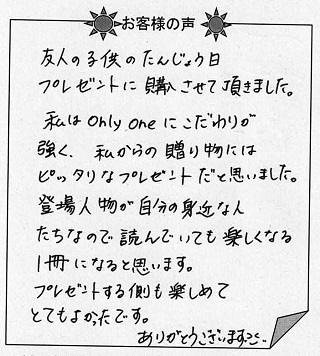 お客様の声
友人の子供のたんじょう日
プレゼントに購入させて頂きました。
私はOnly oneにこだわりが
強く、私からの贈り物には
ピッタリなプレゼントだと思いました。
登場人物が自分の身近な人
たちなので読んでいても楽しくなる
1冊になると思います。
プレゼントする側も楽しめて
とてもよかったです。
ありがとうございます